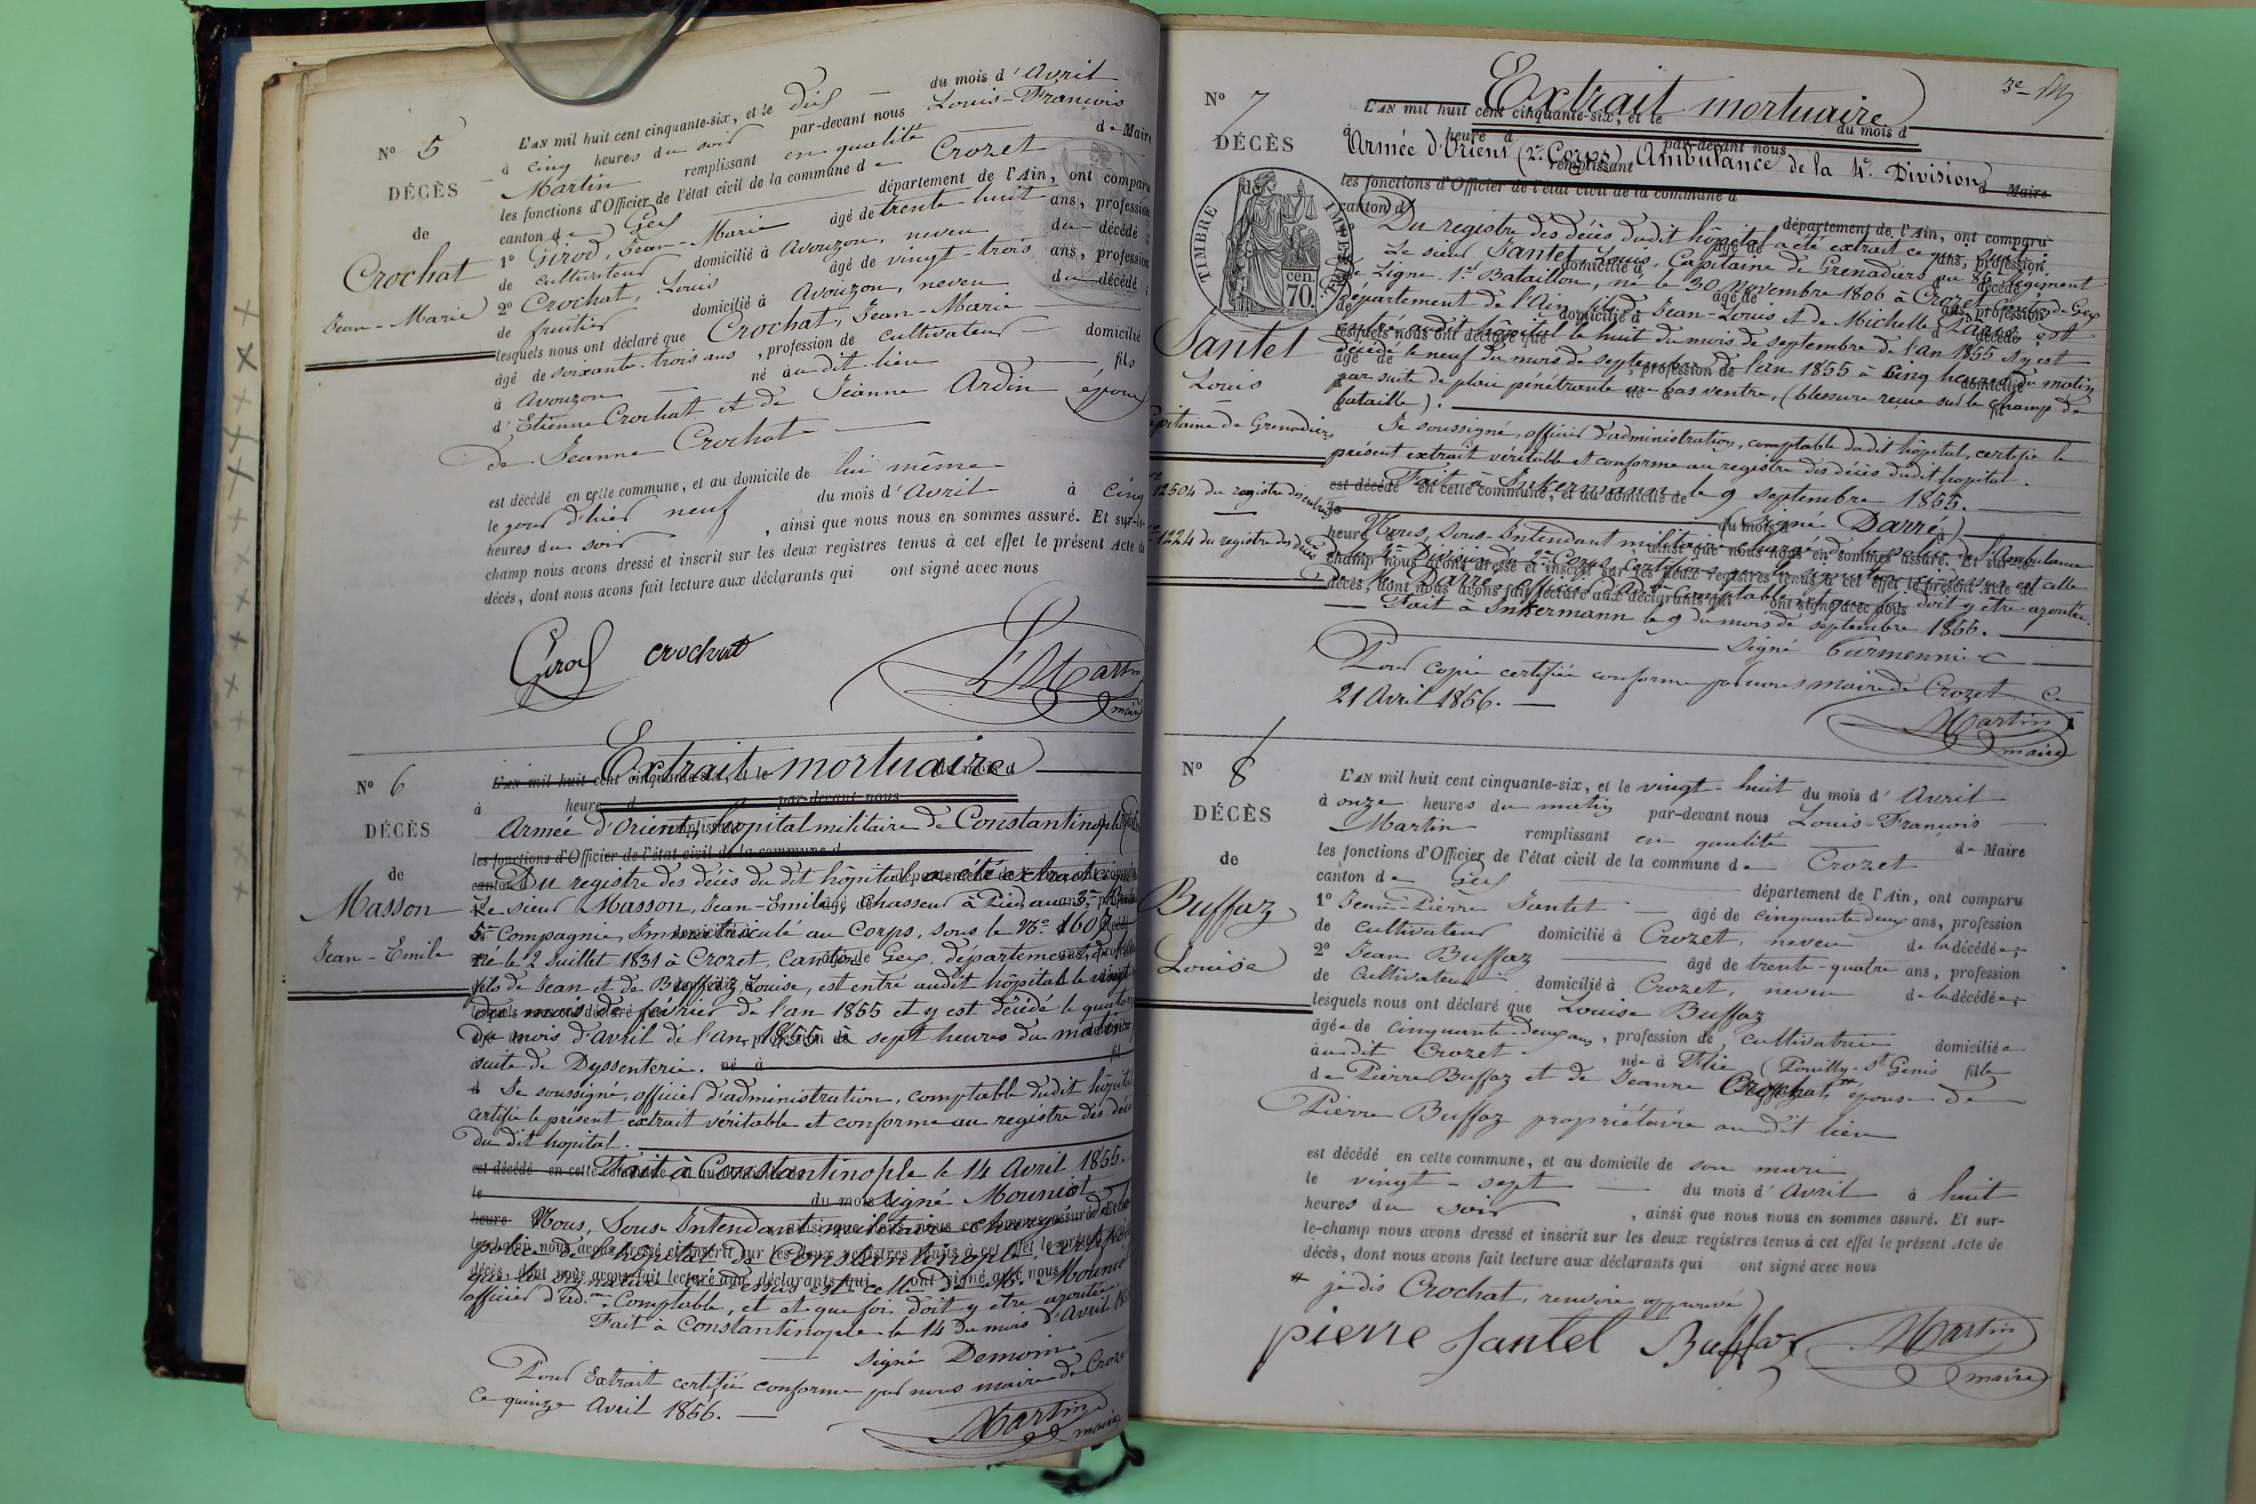 N° 5
DÉCÈS
de
Crochat
Jean-Marie
L'AN mil huit cent cinquante-six, et le dix du mois d'Avril
à cinq heures du soir par-devant nous Louis-François
Martin remplissant en qualité de Maire
les fonctions d'Officier de l'état civil de la commune de Crozet
canton de Gex département de l'Ain, ont comparu
1° Girod, Jean-Marie âgé de trente-huit ans, profession
de cultivateur domicilié à Avouzon, neveu du décédé ;
2° Crochat, Louis âgé de vingt-trois ans, profession
de fruitier domicilié à Avouzon, neveu du décédé ;
lesquels nous ont déclaré que Crochat, Jean-Marie
âgé de soixante-trois ans, profession de cultivateur domicilié
à Avouzon né au dit lieu fils
d'Etienne Crochat et de Jeanne Ardin époux
de Jeanne Crochat
est décédé en cette commune, et au domicile de lui même
le jour d'hier neuf du mois d'Avril à cinq
heures du soir, ainsi que nous nous en sommes assuré. Et sur-le-
champ nous avons dressé et inscrit sur les deux registres tenus à cet effet le présent Acte de
décès, dont nous avons fait lecture aux déclarants qui ont signé avec nous
Girod crochat L. Martin
maire
N° 6
DÉCÈS
de
Masson
Jean-Emile
Extrait mortuaire
Armée d'Orient, hopital militaire de Constantinople
Du registre des décès du dit hôpital a été extrait ce qui
Le sieur Masson, Jean-Emile, chasseur à Pied au 3me
5me Compagnie, Immatriculé au Corps, sous le N°
né le 2 Juillet 1831 à Crozet, Canton de Gex, département
fils de Jean et de Buffaz Louise, est entré audit hôpital le
du mois de février de l'an 1855 et y est décédé le
du mois d'avril de l'an 1855 à sept heures du matin
suite de Dyssenterie.
Je soussigné, officier d'administration, comptable dudit hôpital
certifie le présent extrait véritable et conforme au registre des décès
du dit hopital.
Fait à Constantinople le 14 Avril 1855.
signé Mouniot
Nous, Sous-Intendant militaire chargé de la
police de l'hôpital de Constantinople, certifions
que la signature ci-dessus est celle de Mr. Mouniot
officier d'Ad.on Comptable, et et que foi doit y être ajoutée
Fait à Constantinople le 14 du mois d'Avril
signé Demoin
Pour Extrait certifié conforme par nous maire de Crozet
ce quinze Avril 1856.
Martin
maire
N° 7
DÉCÈS
TIMBRE IMPERIAL
70 cen.
Santel
Louis
Capitaine de Grenadiers
12504 du registre des entrées
1224 du registre des décès
Extrait mortuaire
Armée d'Orient (2e Corps) Ambulance de la 4e Division
Du registre des décès dudit hôpital a été extrait ce qui suit :
Le sieur Santel Louis, Capitaine de Grenadiers au 86 régiment
de Ligne 1er Bataillon, né le 30 novembre 1806 à Crozet, Canton de Gex
Département de l'Ain, fils de Jean-Louis et de Michelle Paris, est
entré audit hôpital le huit du mois de septembre de l'an 1855 et y est
décédé le neuf du mois de septembre de l'an 1855 à cinq heures du matin
par suite de plaie pénétrante au bas ventre, (blessure reçue sur le champ de
bataille).
Je soussigné, officier d'administration, comptable dudit hôpital, certifie le
présent extrait véritable et conforme au registre des décès dudit hopital.
Fait à Inkermann le 9 septembre 1855.
(signé Darré)
Nous, sous-Intendant militaire chargé de la police de l'Ambulance
de la 4me Division du 2e Corps, certifions que la signature ci-dessus est celle
de Mr. Darré, officier d'Ad.on Comptable et que foi doit y être ajoutée.
Fait à Inkermann le 9 du mois de septembre 1855.
Signé
Pour copie certifiée conforme par nous maire de Crozet ce
21 Avril 1856.
Martin
maire
N° 8
DÉCÈS
de
Buffaz
Louise
L'AN mil huit cent cinquante-six, et le vingt-huit du mois d'Avril
à onze heures du matin par-devant nous Louis-François
Martin remplissant en qualité de Maire
les fonctions d'Officier de l'état civil de la commune de Crozet
canton de Gex département de l'Ain, ont comparu
1° Jean-Pierre Santel âgé de cinquante deux ans, profession
de cultivateur domicilié à Crozet, neveu de la décédée ;
2° Jean Buffaz âgé de trente-quatre ans, profession
de Cultivateur domicilié à Crozet, neveu de la décédée ;
lesquels nous ont déclaré que Louise Buffaz
âgée de cinquante-deux ans, profession de cultivatrice domiciliée
audit Crozet née à Flie (Pouilly-St Genis fille
de Pierre Buffaz et de Jeanne Crochat, épouse de
Pierre Buffaz propriétaire au dit lieu
est décédé en cette commune, et au domicile de son mari
le vingt-sept du mois d'Avril à huit
heures du soir, ainsi que nous nous en sommes assuré. Et sur-
le-champ nous avons dressé et inscrit sur les deux registres tenus à cet effet le présent Acte de
décès, dont nous avons fait lecture aux déclarants qui ont signé avec nous
# je dis Crochat, renvoi approuvé
pierre Santel Buffaz Martin
maire